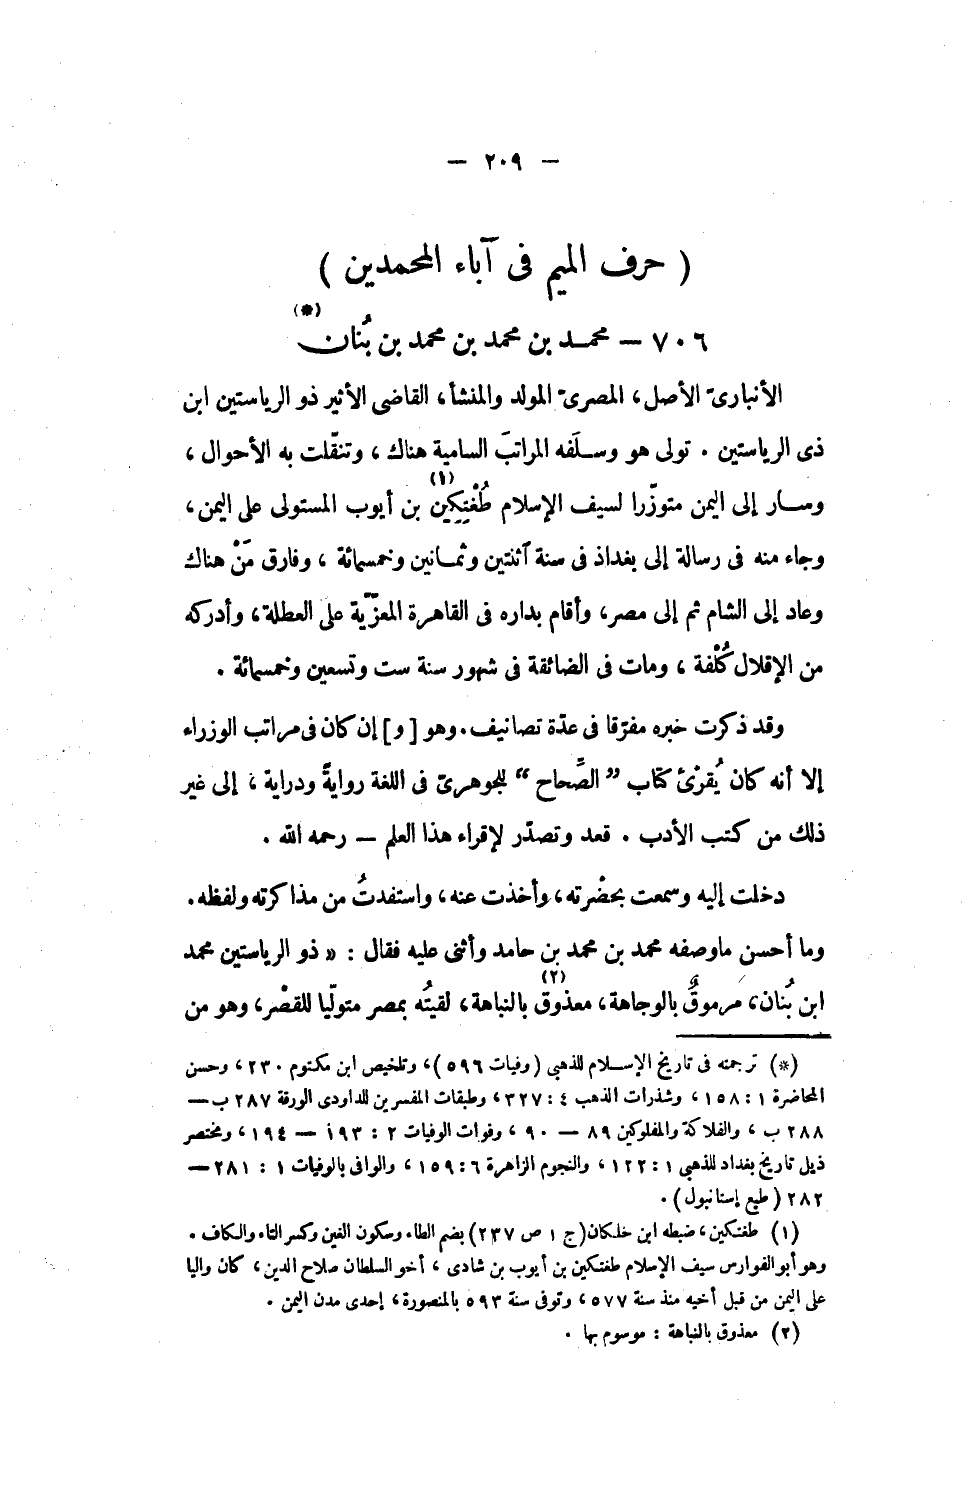 — ٢٠٩ —
( حرف الميم فى آباء المحمدين )
٧٠٦ — محمد بن محمد بن محمد بن بُنان (*)
الأنبارىّ الأصل، المصرىّ المولد والمنشأ، القاضى الأثير ذو الرياستين ابن
ذى الرياستين . تولى هو وسلَفه المراتبَ السامية هناك ، وتنقّلت به الأحوال ،
وسار إلى اليمن متوزّرا لسيف الإسلام طُغْتِكِين (١) بن أيوب المستولى على اليمن،
وجاء منه فى رسالة إلى بغداذ فى سنة آثنتين وثمانين وخمسمائة ، وفارق مَنْ هناك
وعاد إلى الشام ثم إلى مصر، وأقام بداره فى القاهرة المعزّية على العطلة، وأدركه
من الإقلال كُلْفة ، ومات فى الضائقة فى شهور سنة ست وتسعين وخمسمائة .
وقد ذكرت خبره مفرّقا فى عدّة تصانيف. وهو [و] إن كان فى مراتب الوزراء
إلا أنه كان يُقرْئ كتاب ” الصِّحاح “ للجوهرىّ فى اللغة روايةً ودراية ، إلى غير
ذلك من كتب الأدب . قعد وتصدّر لإقراء هذا العلم — رحمه الله .
دخلت إليه وسمعت بحضْرته، وأخذت عنه، واستفدتُ من مذاكرته ولفظه.
وما أحسن ماوصفه محمد بن محمد بن حامد وأثنى عليه فقال : « ذو الرياستين محمد
ابن بُنان، مرموقٌ بالوجاهة، معذوق (٢) بالنباهة، لقيتُه بمصر متولّيا للقصْر، وهو من
(*) ترجمته فى تاريخ الإسلام للذهبى (وفيات ٥٩٦)، وتلخيص ابن مكتوم ٢٣٠ ، وحسن
المحاضرة ١ : ١٥٨ ، وشذرات الذهب ٤ : ٣٢٧، وطبقات المفسرين للداودى الورقة ٢٨٧ ب —
٢٨٨ ب ، والفلاكة والمفلوكين ٨٩ — ٩٠ ، وفوات الوفيات ٢ : ١٩٣ — ١٩٤ ، ومختصر
ذيل تاريخ بغداد للذهبى ١ : ١٢٢ ، والنجوم الزاهرة ٦ : ١٥٩ ، والوافى بالوفيات ١ : ٢٨١ —
٢٨٢ (طبع إستانبول) .
(١) طغتكين، ضبطه ابن خلكان (ج ١ ص ٢٣٧) بضم الطاء وسكون الغين وكسر التاء والكاف .
وهو أبو الفوارس سيف الإسلام طغتكين بن أيوب بن شادى ، أخو السلطان صلاح الدين، كان واليا
على اليمن من قبل أخيه منذ سنة ٥٧٧ ، وتوفى سنة ٥٩٣ بالمنصورة، إحدى مدن اليمن .
(٢) معذوق بالنباهة : موسوم بها .